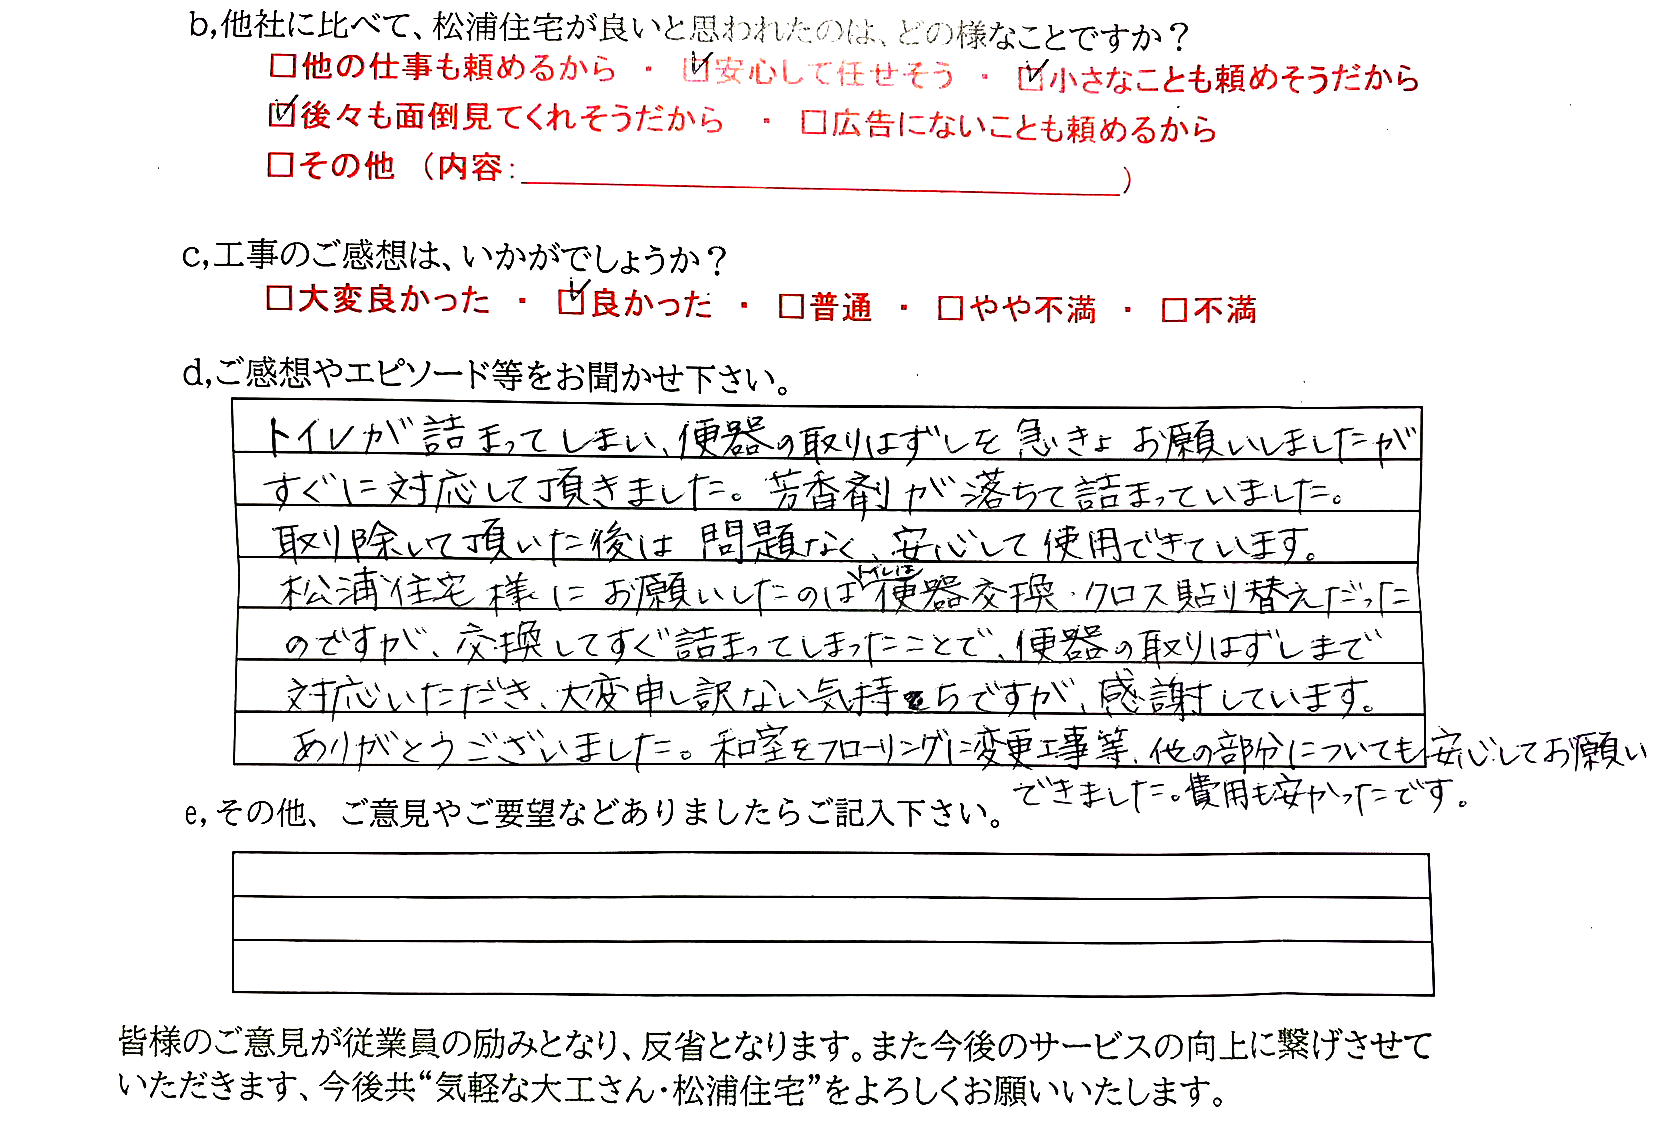 b,他社に比べて、松浦住宅が良いと思われたのは、どの様なことですか？
□他の仕事も頼めるから ・ ☑安心して任せそう ・ ☑小さなことも頼めそうだから
☑後々も面倒見てくれそうだから ・ □広告にないことも頼めるから
□その他 （内容:＿＿＿＿＿＿＿＿＿＿＿＿）
c,工事のご感想は、いかがでしょうか？
□大変良かった ・ ☑良かった ・ □普通 ・ □やや不満 ・ □不満
d,ご感想やエピソード等をお聞かせ下さい。
トイレが詰まってしまい、便器の取りはずしを急きょお願いしましたが
すぐに対応して頂きました。芳香剤が落ちて詰まっていました。
取り除いて頂いた後は問題なく、安心して使用できています。
トイレは
松浦住宅様にお願いしたのは便器交換・クロス貼り替えだった
のですが、交換してすぐ詰まってしまったことで、便器の取りはずしまで
対応いただき、大変申し訳ない気持ちですが、感謝しています。
ありがとうございました。和室をフローリングに変更工事等、他の部分についても安心してお願い
できました。費用も安かったです。
e,その他、ご意見やご要望などありましたらご記入下さい。
皆様のご意見が従業員の励みとなり、反省となります。また今後のサービスの向上に繋げさせて
いただきます、今後共“気軽な大工さん・松浦住宅”をよろしくお願いいたします。